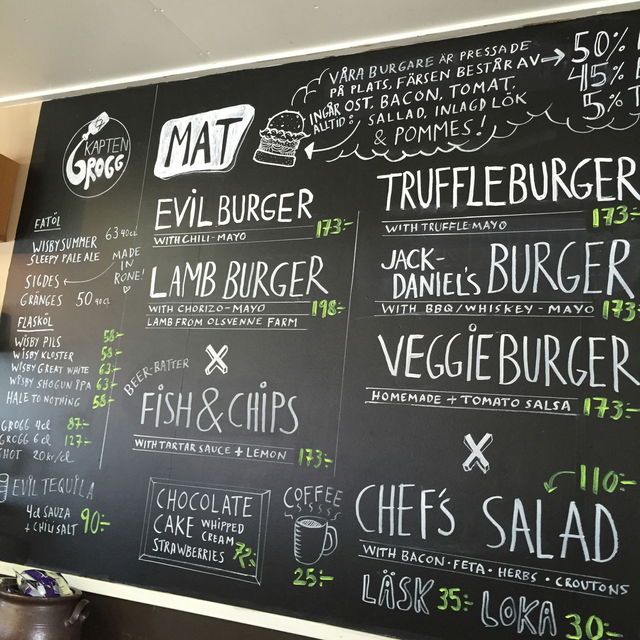 KAPTEN
GROGG
FATÖL
WISBY SUMMER 63 40cl
SLEEPY PALE ALE
MADE
IN
RONE!
SIGDES
GRÄNGES 50 40cl
FLASKÖL
WISBY PILS 58:-
WISBY KLOSTER 58:-
WISBY GREAT WHITE 63:-
WISBY SHOGUN IPA 63:-
HALE TO NOTHING 58:-
GROGG 4cl 87:-
GROGG 6cl 127:-
SHOT 20kr/cl
EVIL TEQUILA
4cl SAUZA
+ CHILI SALT 90:-
MAT
VÅRA BURGARE ÄR PRESSADE
PÅ PLATS, FÄRSEN BESTÅR AV
50%
45%
5%
INGÅR
ALLTID:
OST, BACON, TOMAT,
SALLAD, INLAGD LÖK
& POMMES!
EVIL BURGER
WITH CHILI-MAYO 173:-
LAMB BURGER
WITH CHORIZO-MAYO 198:-
LAMB FROM OLSVENNE FARM
BEER-BATTER
FISH & CHIPS
WITH TARTAR SAUCE + LEMON 173:-
CHOCOLATE
CAKE WHIPPED
CREAM
STRAWBERRIES 72:-
COFFEE
25:-
TRUFFLEBURGER
WITH TRUFFLE-MAYO 173:-
JACK-
DANIEL'S BURGER
WITH BBQ/WHISKEY-MAYO 173:-
VEGGIEBURGER
HOMEMADE + TOMATO SALSA 173:-
110:-
CHEF'S SALAD
WITH BACON · FETA · HERBS · CROUTONS
LÄSK 35:- LOKA 30:-